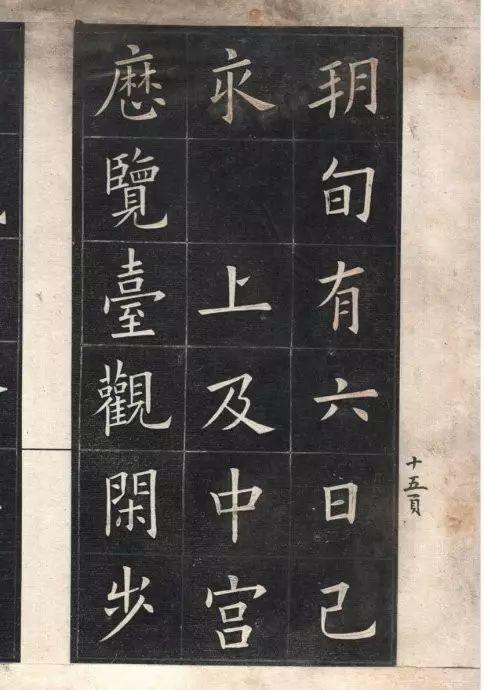 朔旬有六日己
亥 上及中宫
歷覽臺觀閑步
十五頁